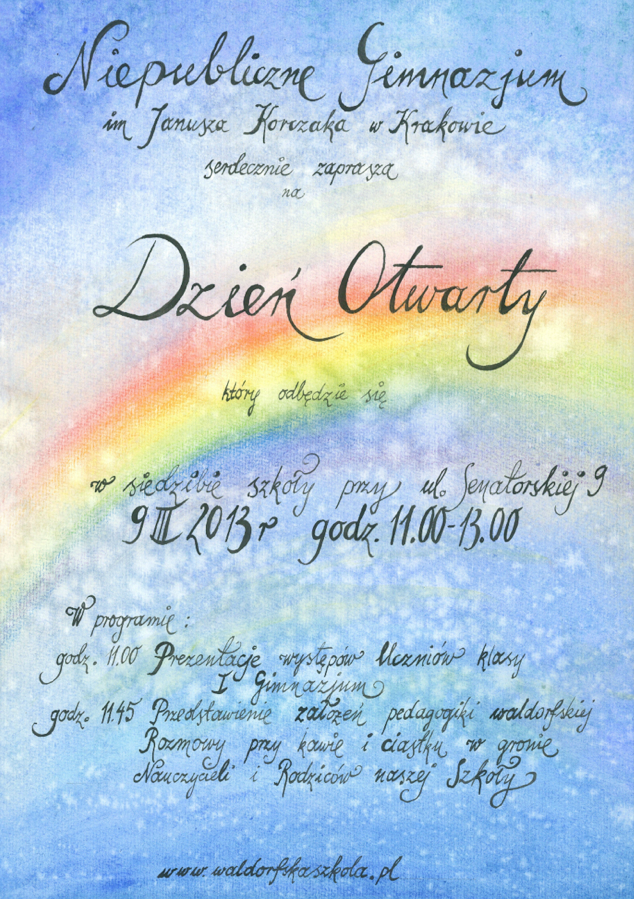 Niepubliczne Gimnazjum
im Janusza Korczaka w Krakowie
serdecznie zaprasza
na
Dzień Otwarty
który odbędzie się
w siedzibie szkoły przy ul. Senatorskiej 9
9 III 2013 r godz. 11.00-13.00
W programie:
godz. 11.00 Prezentacje występów Uczniów klasy
I Gimnazjum
godz. 11.45 Przedstawienie założeń pedagogiki waldorfskiej
Rozmowy przy kawie i ciastku w gronie
Nauczycieli i Rodziców naszej Szkoły
www.waldorfskaszkola.pl